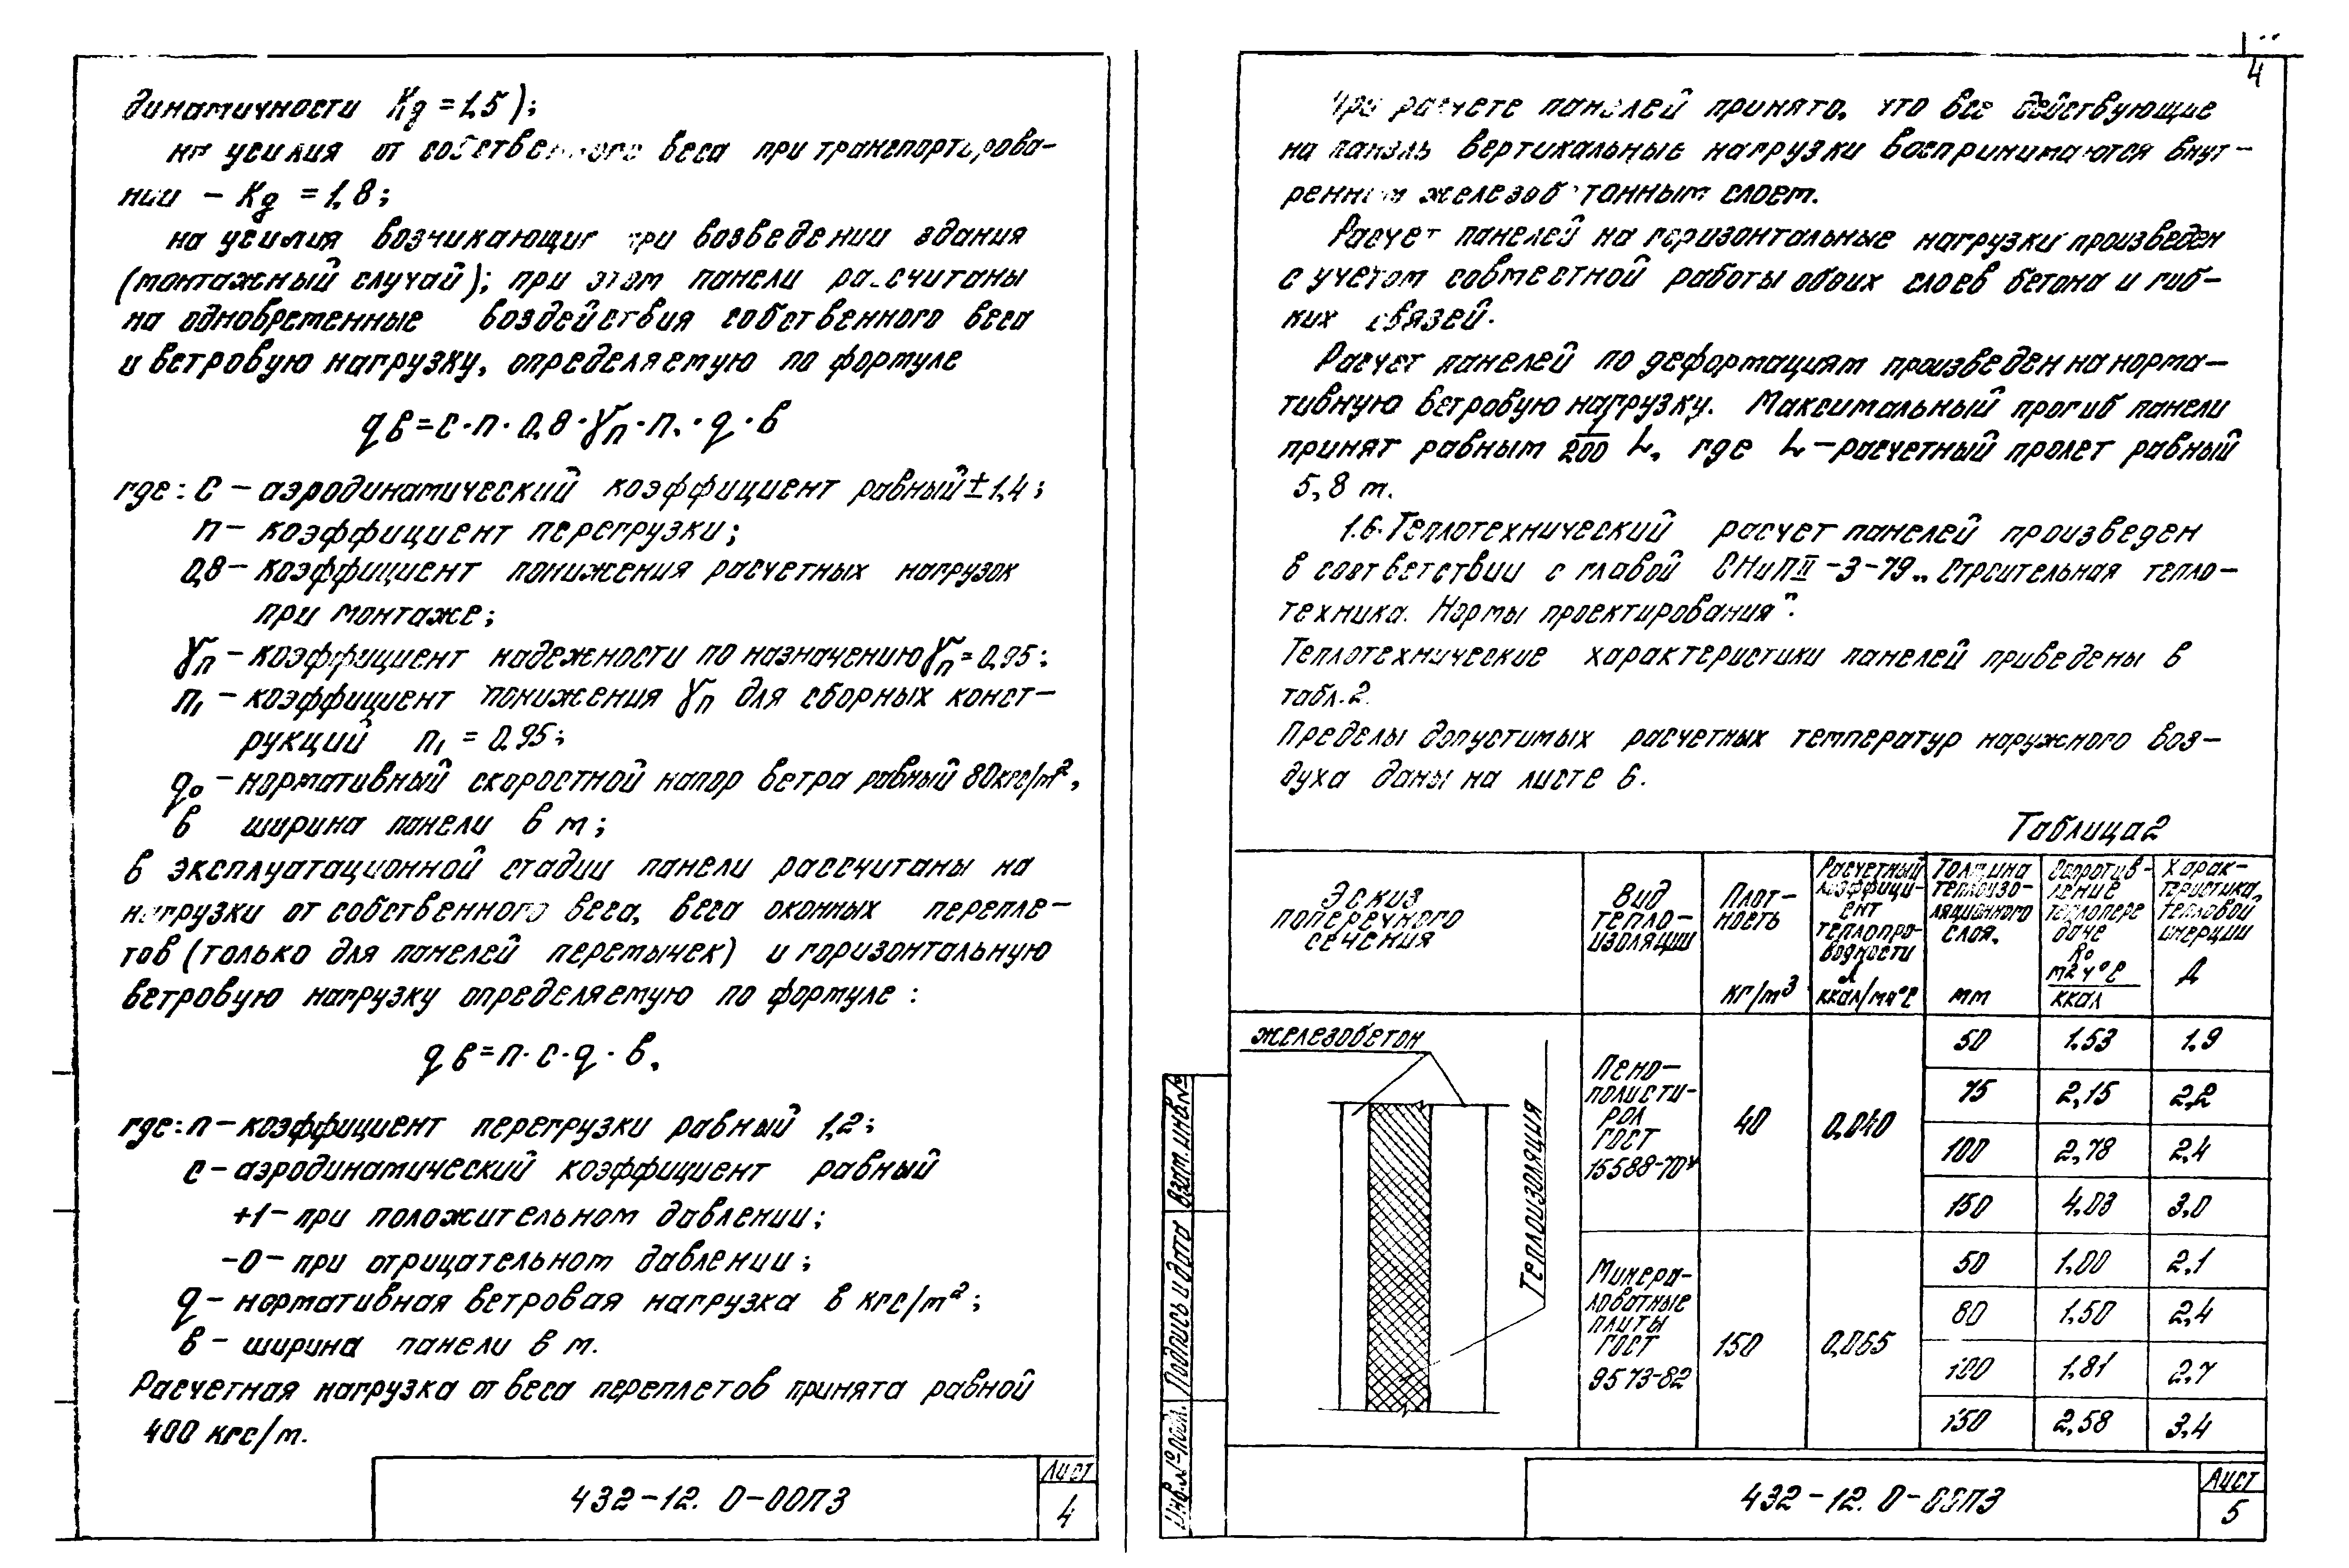 динамичности Кд = 1,5);
на усилия от собственного веса при транспортирова-
нии – Кд = 1,8;
на усилия возникающие при возведении здания
(монтажный случай); при этом панели рассчитаны
на одновременные воздействия собственного веса
и ветровую нагрузку, определяемую по формуле
qв = с·n·0,8·γn·n₁·q·в
где: С – аэродинамический коэффициент равный ±1,4;
n – коэффициент перегрузки;
0,8 – коэффициент понижения расчетных нагрузок
при монтаже;
γn – коэффициент надежности по назначению γn = 0,95;
n₁ – коэффициент понижения γn для сборных конст-
рукций n₁ = 0,95;
q₀ – нормативный скоростной напор ветра равный 80кгс/м²,
в ширина панели в м;
в эксплуатационной стадии панели рассчитаны на
нагрузки от собственного веса, веса оконных перепле-
тов (только для панелей перемычек) и горизонтальную
ветровую нагрузку определяемую по формуле:
qв = n·с·q·в,
где: n – коэффициент перегрузки равный 1,2;
с – аэродинамический коэффициент равный
+1 – при положительном давлении;
-0 – при отрицательном давлении;
q – нормативная ветровая нагрузка в кгс/м²;
в – ширина панели в м.
Расчетная нагрузка от веса переплетов принята равной
400 кгс/м.
432-12. 0-00ПЗ
Лист
4
4
При расчете панелей принято, что все действующие
на панель вертикальные нагрузки воспринимаются внут-
ренним железобетонным слоем.
Расчет панелей на горизонтальные нагрузки произведен
с учетом совместной работы обоих слоев бетона и гиб-
ких связей.
Расчет панелей по деформациям произведен на норма-
тивную ветровую нагрузку. Максимальный прогиб панели
принят равным 1/200 L, где L – расчетный пролет равный
5,8 м.
1.6. Теплотехнический расчет панелей произведен
в соответствии с главой СНиП II-3-79 „Строительная тепло-
техника. Нормы проектирования".
Теплотехнические характеристики панелей приведены в
табл. 2.
Пределы допустимых расчетных температур наружного воз-
духа даны на листе 6.
Таблица 2
Эскиз
поперечного
сечения
Вид
тепло-
изоляции
Плот-
ность
кг/м³
Расчетный
коэффици-
ент
теплопро-
водности
λ
ккал/мч°С
Толщина
теплоизо-
ляционного
слоя,
мм
Сопротив-
ление
теплопере
даче
R₀
м2ч°С
ккал
Харак-
теристика
тепловой
инерции
Д
железобетон
Теплоизоляция
Пено-
полисти-
рол
ГОСТ
15588-70*
40
0,040
50 1.53 1.9
75 2,15 2,2
100 2,78 2,4
150 4,03 3,0
Минера-
ловатные
плиты
ГОСТ
9573-82
150
0,065
50 1.00 2,1
80 1.50 2,4
100 1.81 2,7
150 2,58 3,4
Взам. инв.№
Подпись и дата
Инв.№ подл.
432-12. 0-00ПЗ
Лист
5